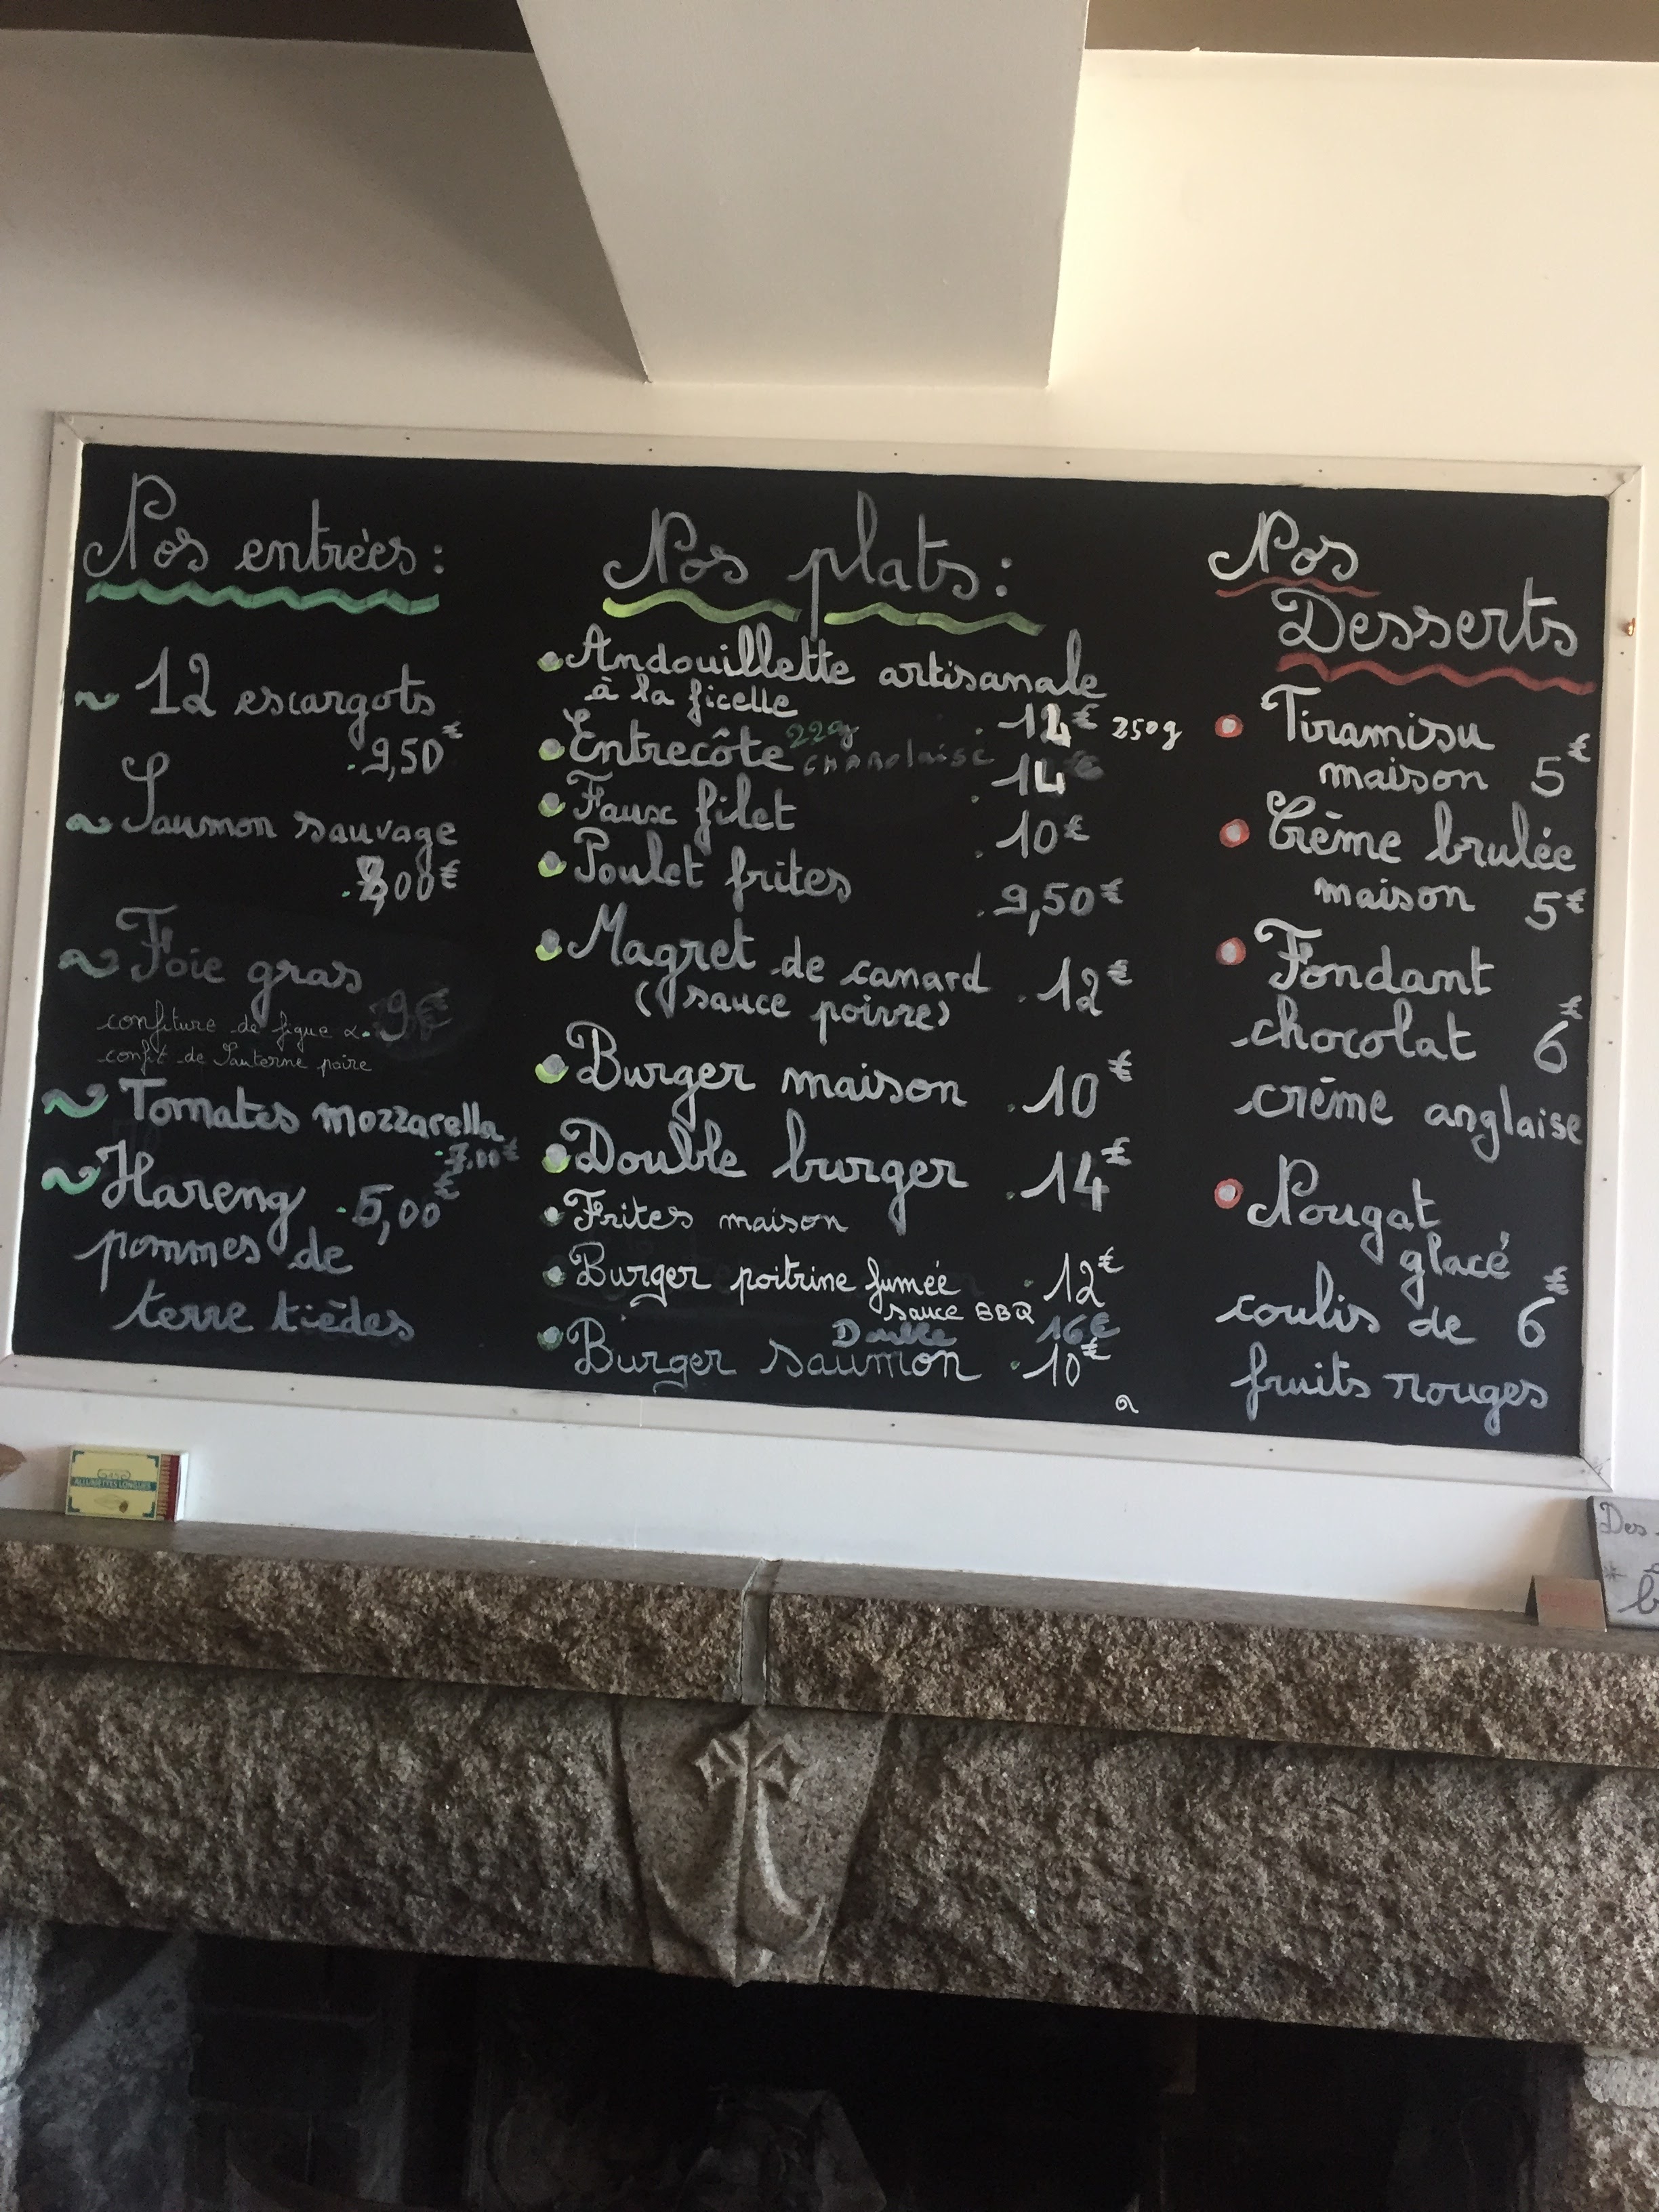 Nos entrées :
~ 12 escargots
.9,50€
~ Saumon sauvage
00€
~ Foie gras
confiture de figue .9€
confit de Sauterne poire
~ Tomates mozzarella
.7.00€
~ Hareng .5,00€
pommes de
terre tièdes
Nos plats :
Andouillette artisanale
à la ficelle .12€ 250g
Entrecôte 220g charolaise
.14€
Faux filet .10€
Poulet frites .9,50€
Magret de canard .12€
(sauce poivre)
Burger maison .10€
Double burger .14€
Frites maison
Burger poitrine fumée .12€
sauce BBQ
Double 16€
Burger saumon .10€
Nos
Desserts
Tiramisu
maison 5€
Crème brulée
maison 5€
Fondant
chocolat 6€
crème anglaise
Nougat
glacé
coulis de 6€
fruits rouges
ALLUMETTES LONGUES
Des